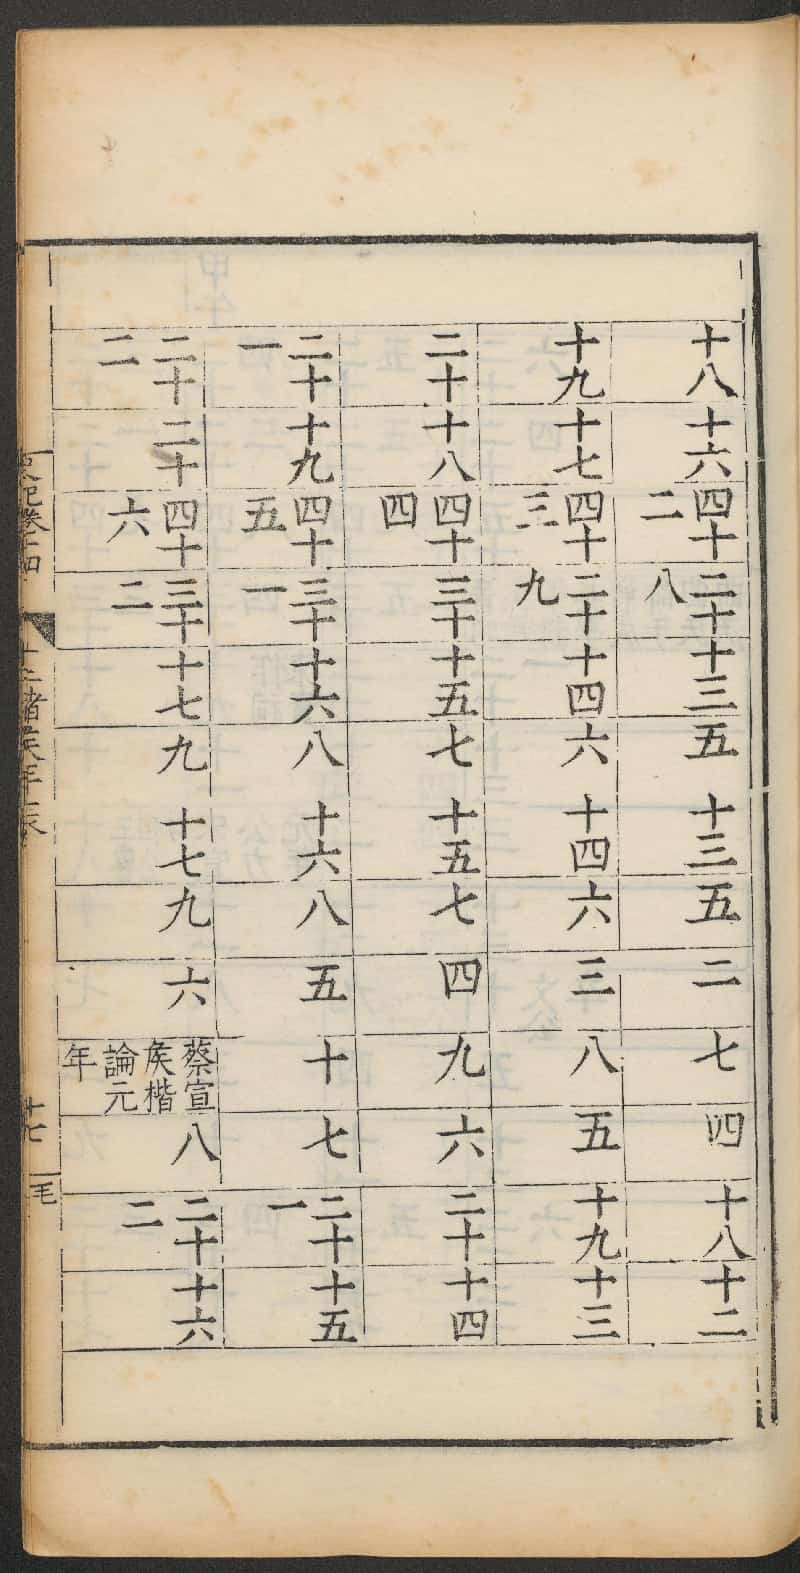 十八 十六 四十二 二十八 十三 五 十三 五 二 七 四 十八 十二
十九 十七 四十三 二十九 十四 六 十四 六 三 八 五 十九 十三
二十 十八 四十四 三十 十五 七 十五 七 四 九 六 二十 十四
二十一 十九 四十五 三十一 十六 八 十六 八 五 十 七 二十一 十五
二十二 二十 四十六 三十二 十七 九 十七 九 六 蔡宣矦楷論元年 八 二十二 十六
史記卷十四 十二諸矦年表 十七 毛